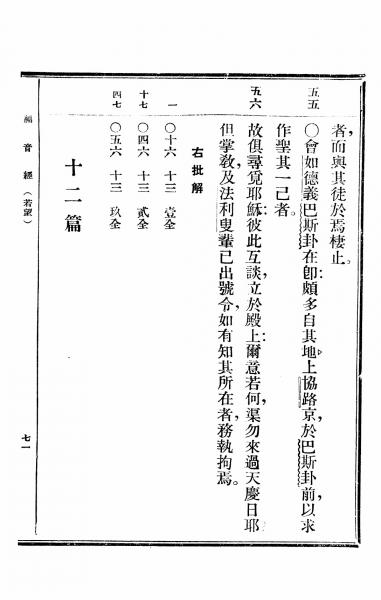 者，而與其徒於焉棲止。
五五
〇會如德義巴斯卦在卽：頗多自其地上協路京，於巴斯卦前，以求
作聖其一己者。
五六
故俱尋覓耶穌：彼此互談，立於殿上：爾意若何，渠勿來過天慶日耶
但掌敎及法利叟輩已出號令，如有知其所在者，務執拘焉。
右批解
一 〇十六 十三 壹全
十七 〇四六 十三 貳全
四七 〇五六 十三 玖全
十二篇
福音經（若望）
七一